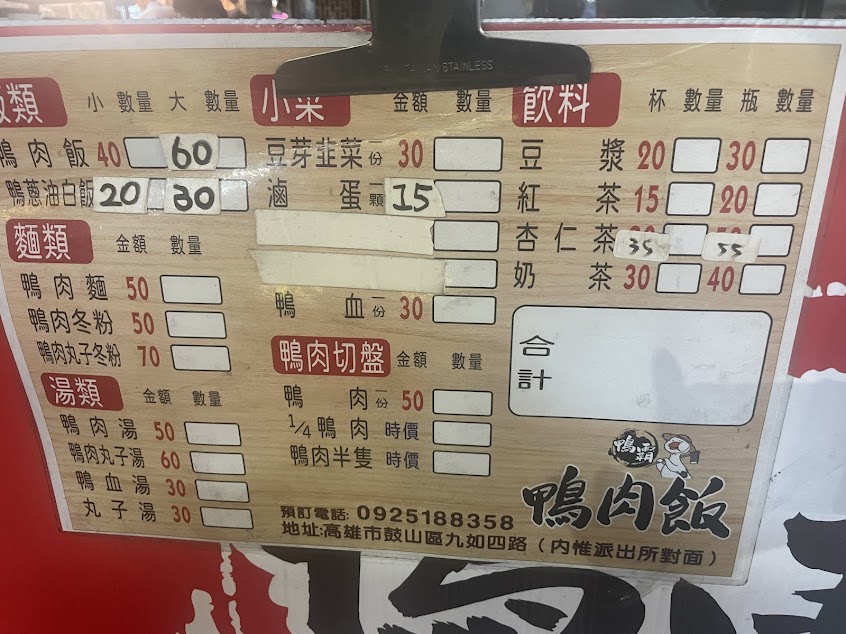 飯類 小 數量 大 數量
鴨肉飯 40 60
鴨蔥油白飯 20 30
麵類 金額 數量
鴨肉麵 50
鴨肉冬粉 50
鴨肉丸子冬粉 70
湯類 金額 數量
鴨肉湯 50
鴨肉丸子湯 60
鴨血湯 30
丸子湯 30
小菜 金額 數量
豆芽韭菜 一份 30
滷蛋 一顆 15
鴨血 一份 30
鴨肉切盤 金額 數量
鴨肉 一份 50
1/4鴨肉 時價
鴨肉半隻 時價
飲料 杯 數量 瓶 數量
豆漿 20 30
紅茶 15 20
杏仁茶 35 55
奶茶 30 40
合計
鴨霸
鴨肉飯
預訂電話: 0925188358
地址:高雄市鼓山區九如四路（內惟派出所對面）
STAINLESS